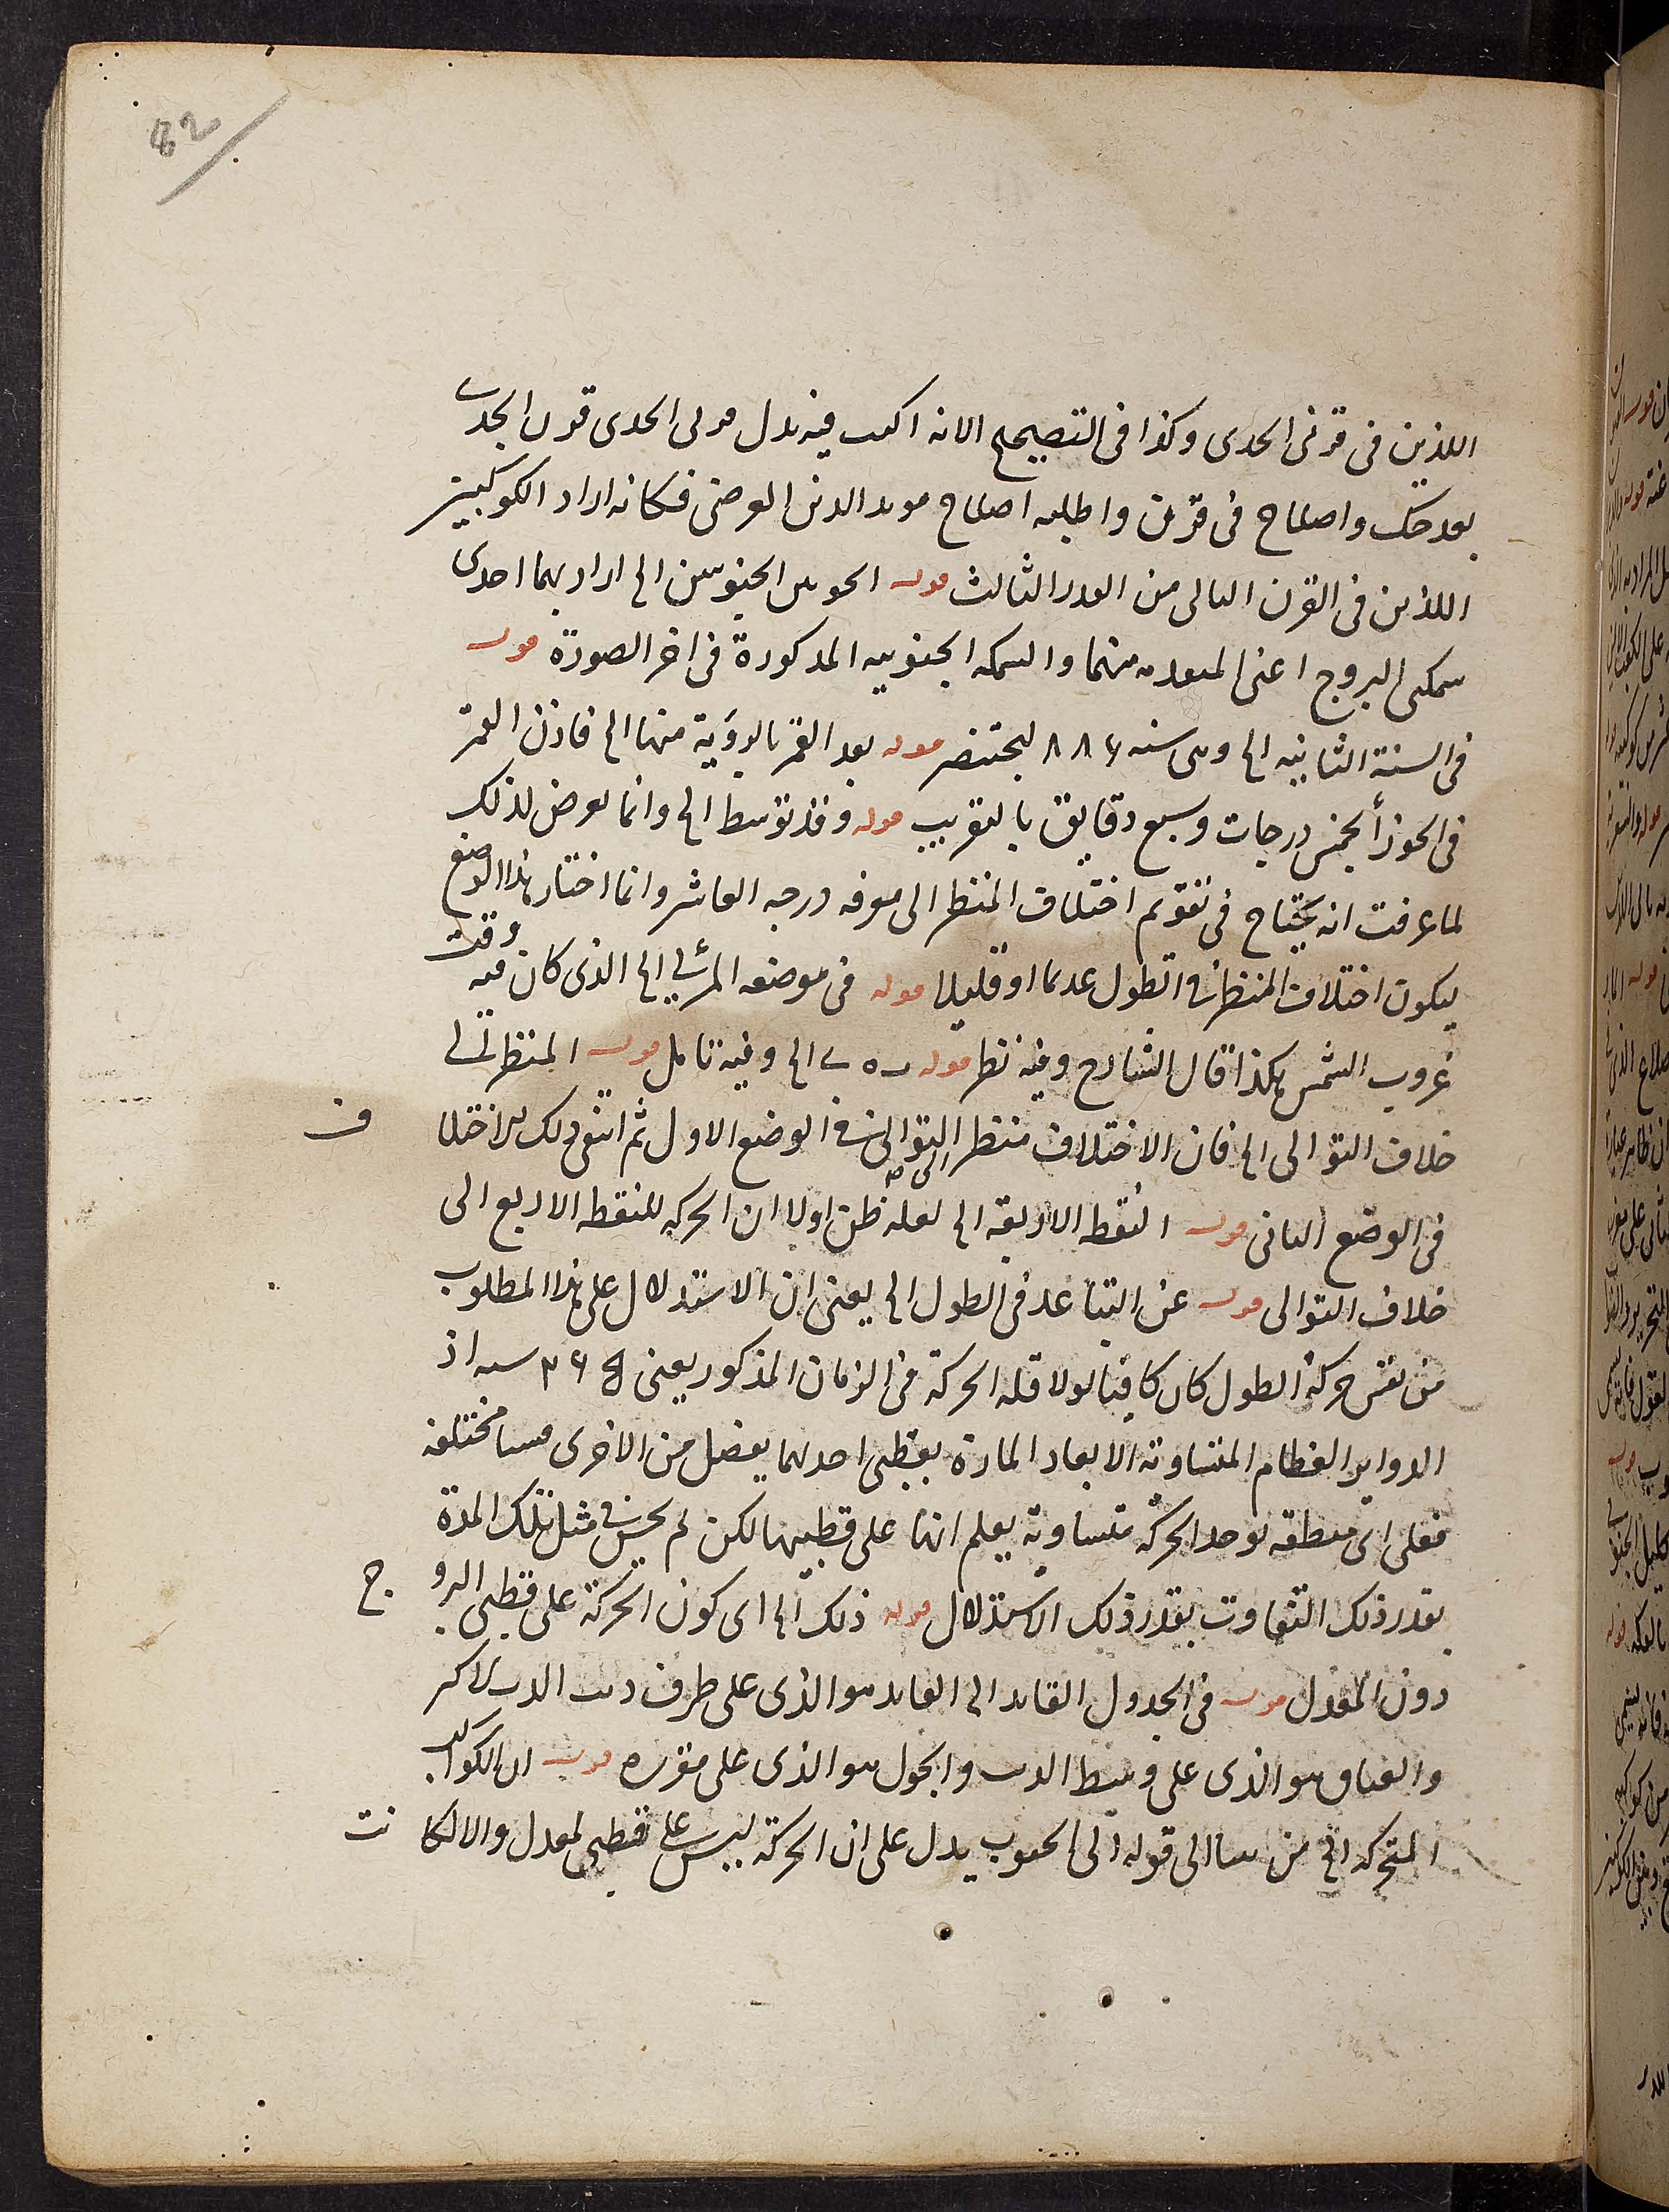 82
اللذين فى قرنى الجدى وكذا فى التصحيح الا انه اكتب فيه بدل قرنى الجدى قرن الجدى
بعد حك واصلاح فى قرن واظنه اصلاح مويد الدين العرضى فكانه اراد الكوكبين
اللذين فى القرن التالى من العدد الثالث قوله الحوتين الجنوبيين الخ اراد بهما احدى
سمكتى البروج اعنى المتقدمة منهما والسمكة الجنوبية المذكورة فى اخر الصورة قوله
فى السنة الثانية الخ وهى سنه ٨٨٦ لبختنصر قوله بعد القمر بالرؤية منها الخ فاذن القمر
فى الجوزأ بخمس درجات وسبع دقايق بالتقريب قوله وقد توسط الخ وانما تعرض لذلك
لما عرفت انه يحتاج فى تقويم اختلاف المنظر الى معرفة درجه العاشر وانما اختار هذا الوضع
ليكون اختلاف المنظر فى الطول عدما او قليلا قوله فى موضعه المرئى الخ الذى كان فيه وقت
غروب الشمس هكذا قال الشارح وفيه نظر قوله الخ وفيه تامل قوله المنظر الى
خلاف التوالى الخ فان الاختلاف منظر الى التوالى فى الوضع الاول ثم انتفى ذلك الاختلاف
فى الوضع الثانى قوله النقط الاربعة الخ لعله ظن اولا ان الحركه للنقطه الاربع الى
خلاف التوالى قوله عن التباعد فى الطول الخ يعنى ان الاستدلال على هذا المطلوب
من نفس حركة الطول كان كافيا لولا قلة الحركة فى الزمان المذكور يعنى سنه اذ
الدواير العظام المتساوية الابعاد المارة بقطبى احديهما يفصل من الاخرى قسيا مختلفه
فعلى اى منطقه توجد الحركه متساوية يعلم انها على قطبيها لكن لم يحس فى مثل تلك المدة
بقدر ذلك التفاوت بقدر ذلك الاستدلال قوله ذلك الخ اى كون الحركة على قطبى البروج
دون المعدل قوله فى الجدول القايد الخ القايد هو الذى على طرف ذنب الدب الاكبر
والعناق هو الذى على وسط الذنب والجون هو الذى على مغرزه قوله ان الكواكب
المتحركه الخ من هنا الى قوله الى الجنوب يدل على ان الحركة ليس على قطبى المعدل والا لكانت